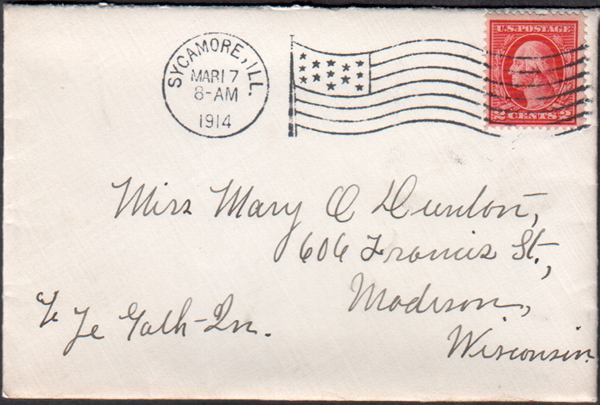 SYCAMORE, ILL.
MAR 17
8-AM
1914
U.S. POSTAGE
2 CENTS 2
Miss Mary O Dunton,
606 Francis St.,
Madison,
Wisconsin.
%
Ye Gath-Inn.